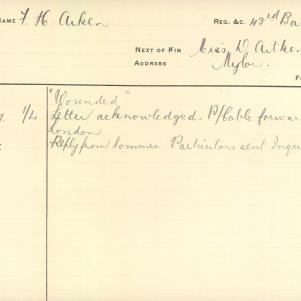 NAME F. H. Aitken REG. &C. 43rd Ba
NEXT OF KIN Miss D. Aitke
ADDRESS Mylor.
"Wounded"
1/2 Letter acknowledged. P/Cable forwar
London
Reply from Commrs. Particulars sent Inqu